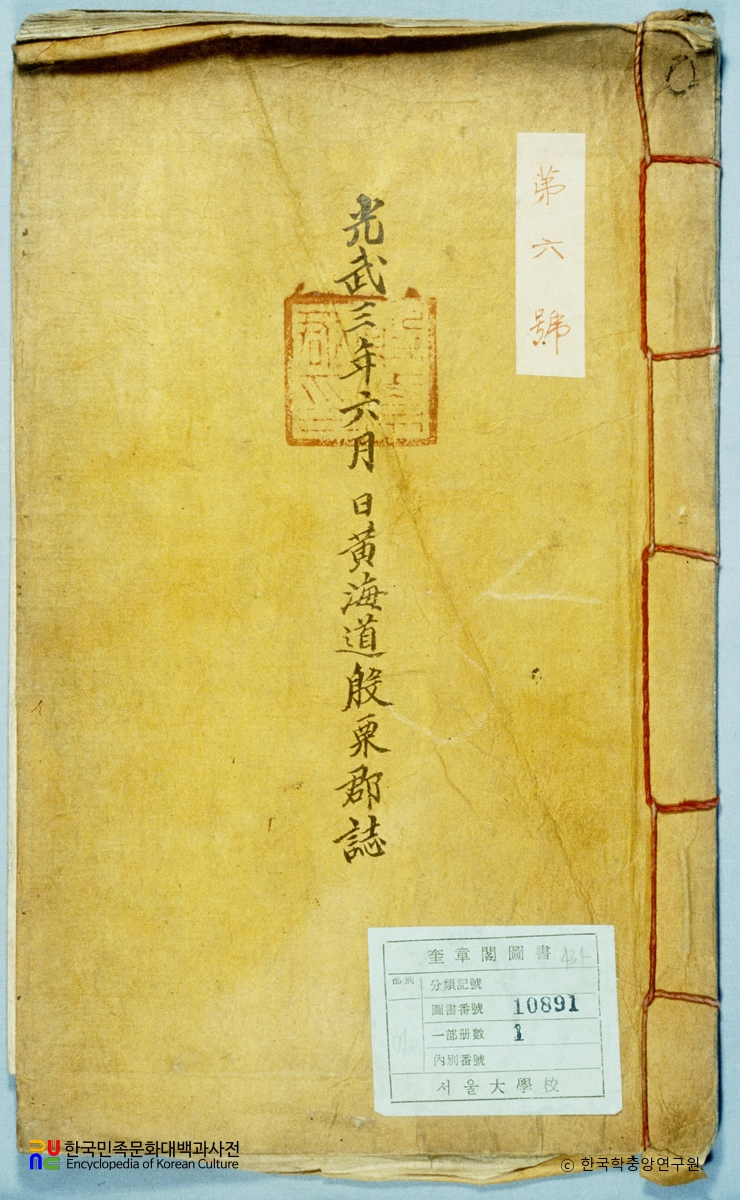 第六號
光武三年六月 日黃海道殷栗郡誌
奎章閣圖書
部別
分類記號
圖書番號 10891
一部册數 1
內別番號
서울大學校
한국민족문화대백과사전
Encyclopedia of Korean Culture
ⓒ 한국학중앙연구원